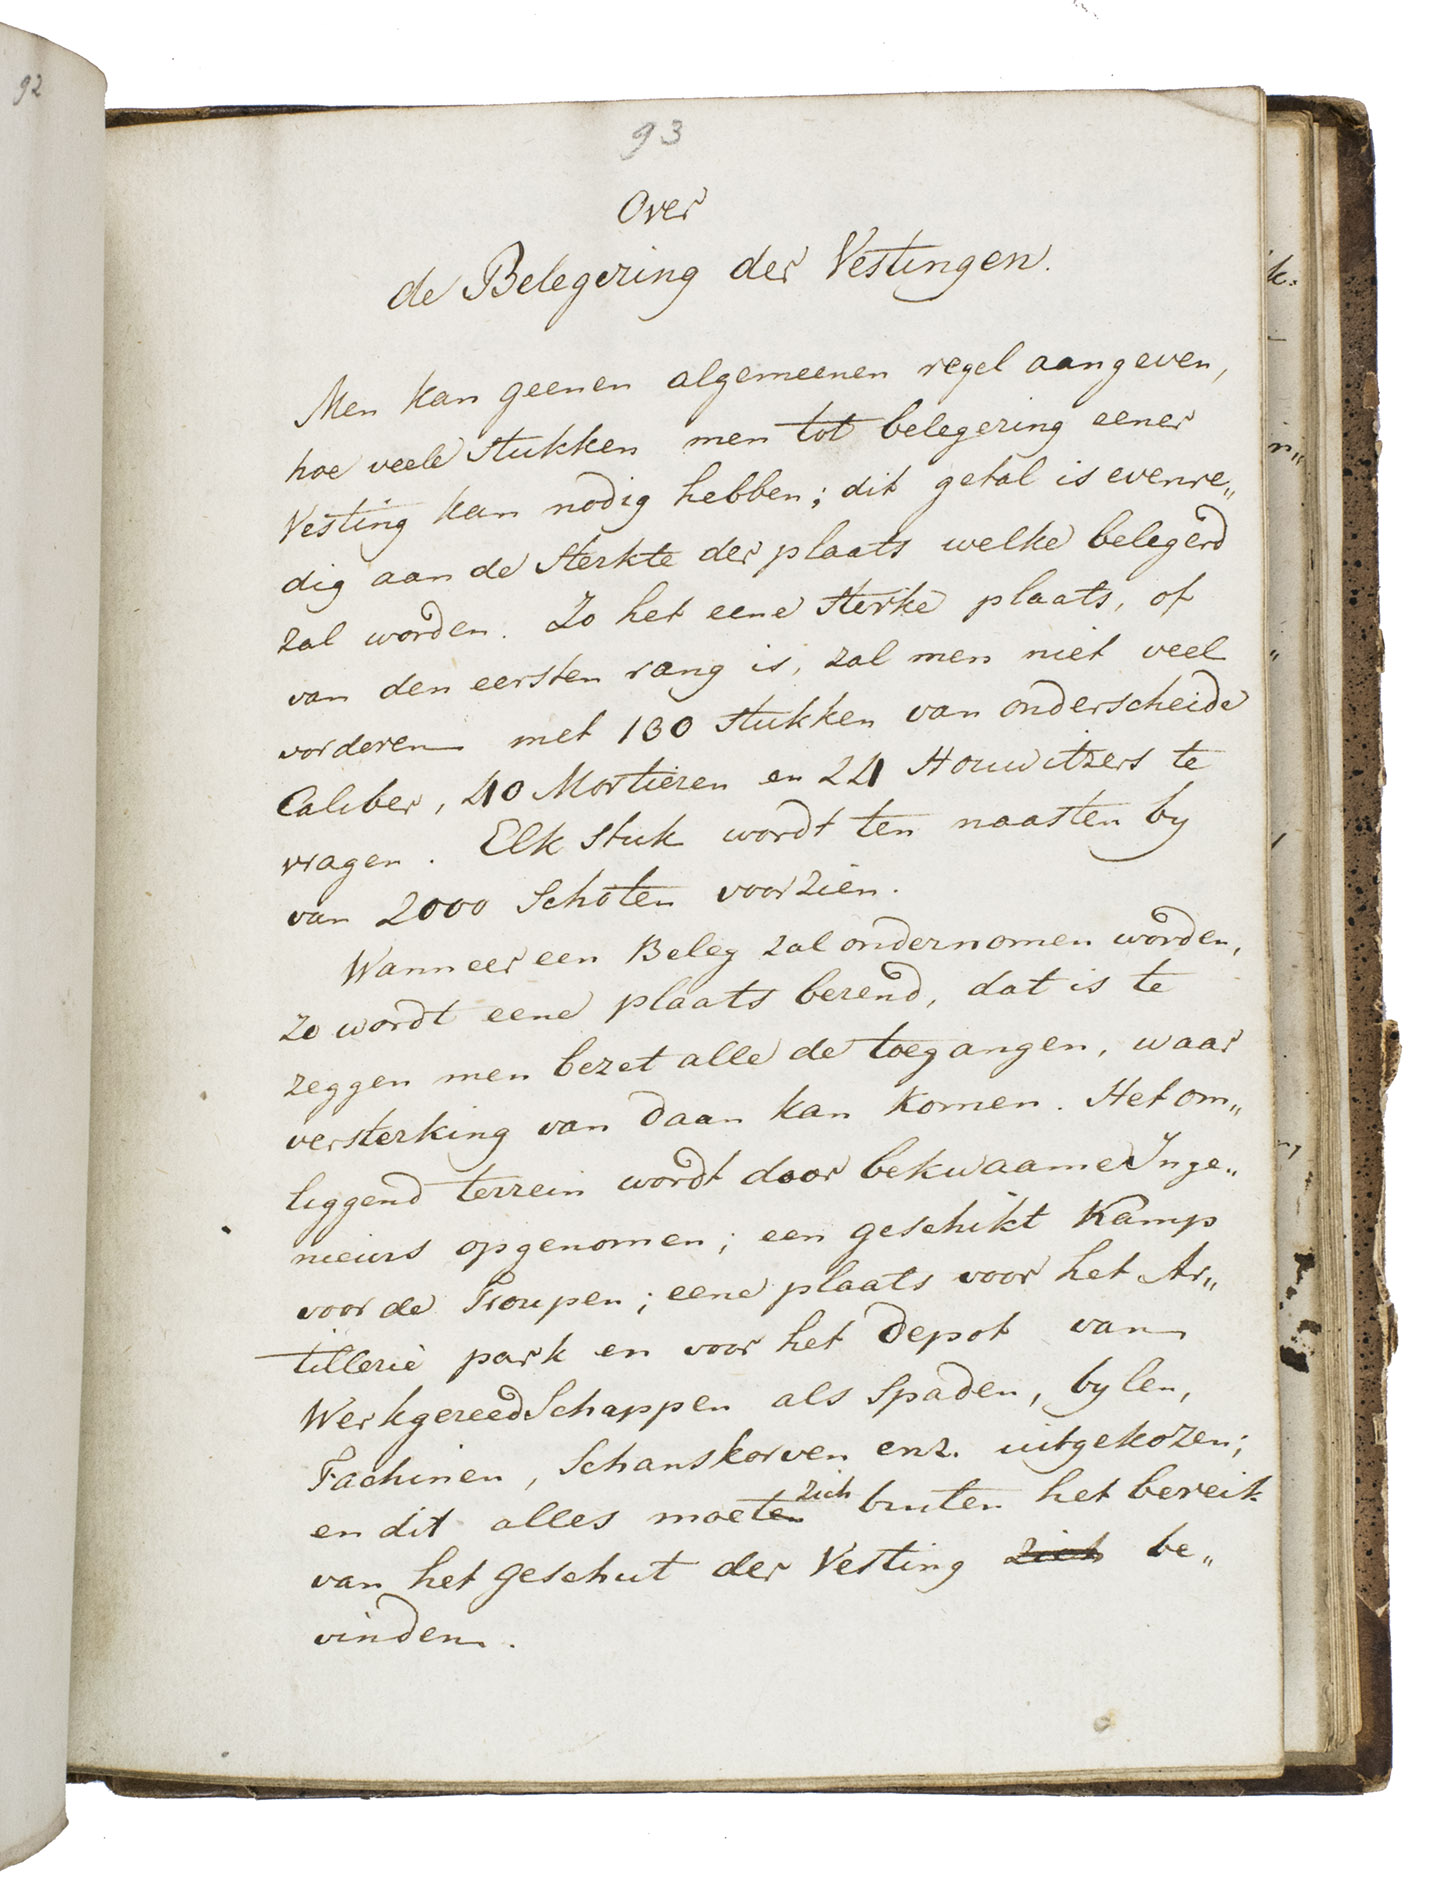 92
93
Over
de Belegering der Vestingen.
Men kan geenen algemeenen regel aangeven,
hoe veele stukken men tot belegering eener
Vesting kan nodig hebben; dit getal is evenre„
dig aan de sterkte der plaats welke belegerd
zal worden. Zo het eene sterke plaats, of
van den eersten rang is, zal men niet veel
vorderen met 130 stukken van onderscheide
Caliber, 40 Mortieren en 24 Houwitzers te
vragen. Elk stuk wordt ten naasten by
van 2000 Schoten voorzien.
Wanneer een Beleg zal ondernomen worden,
zo wordt eene plaats berend, dat is te
zeggen men bezet alle de toegangen, waar
versterking van daan kan komen. Het om„
liggend terrein wordt door bekwaame Inge„
nieurs opgenomen; een geschikt Kamp
voor de Troupen; eene plaats voor het Ar„
tillerie park en voor het Depot van
Werkgereedschappen als Spaden, bylen,
Fachinen, Schanskorven enz. uitgekozen;
en dit alles moeten zich buten het bereik
van het geschut der Vesting zich be„
vinden.